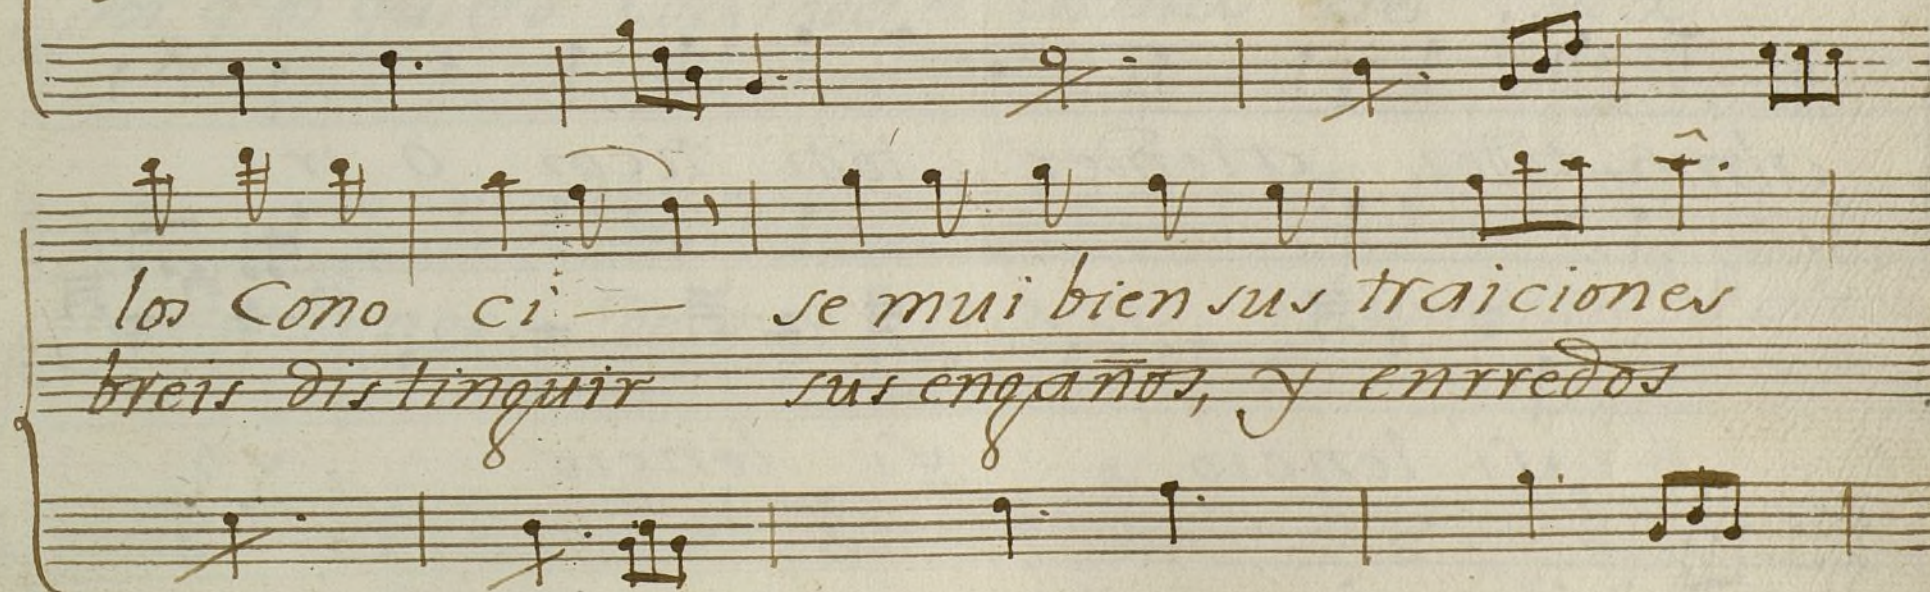 los Cono ci — se mui bien sus traiciones
breis distinguir sus engaños, y enrredos